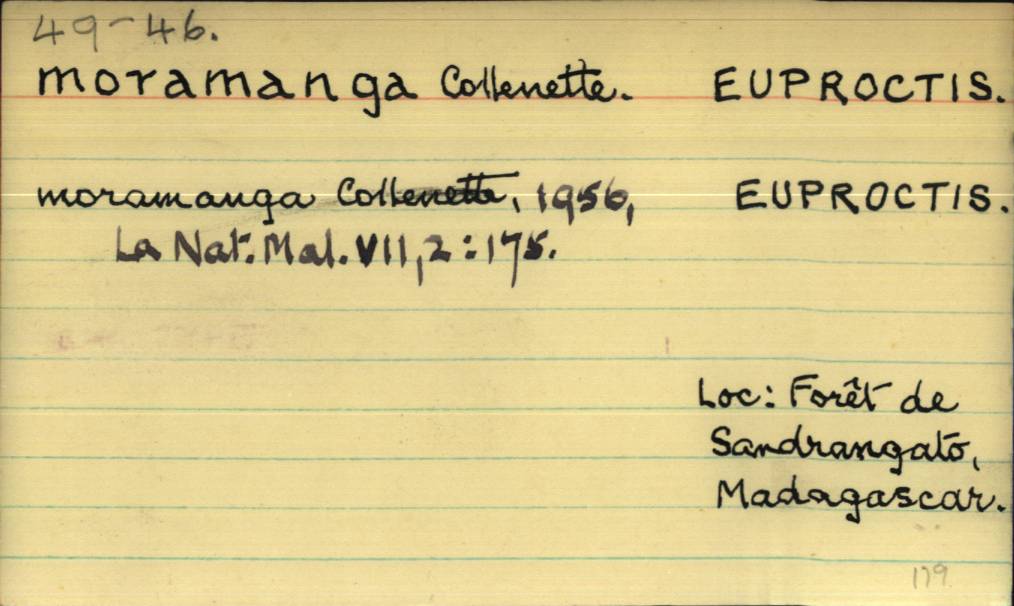 49-46.
moramanga Collenette. EUPROCTIS.
moramanga Collenette, 1956, EUPROCTIS.
La Nat. Mal. VII, 2 : 175.
Loc: Forêt de
Sandrangato,
Madagascar.
179